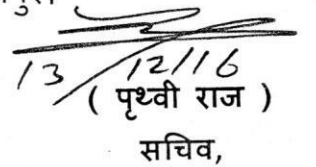 13/12/16
( पृथ्वी राज )
सचिव,